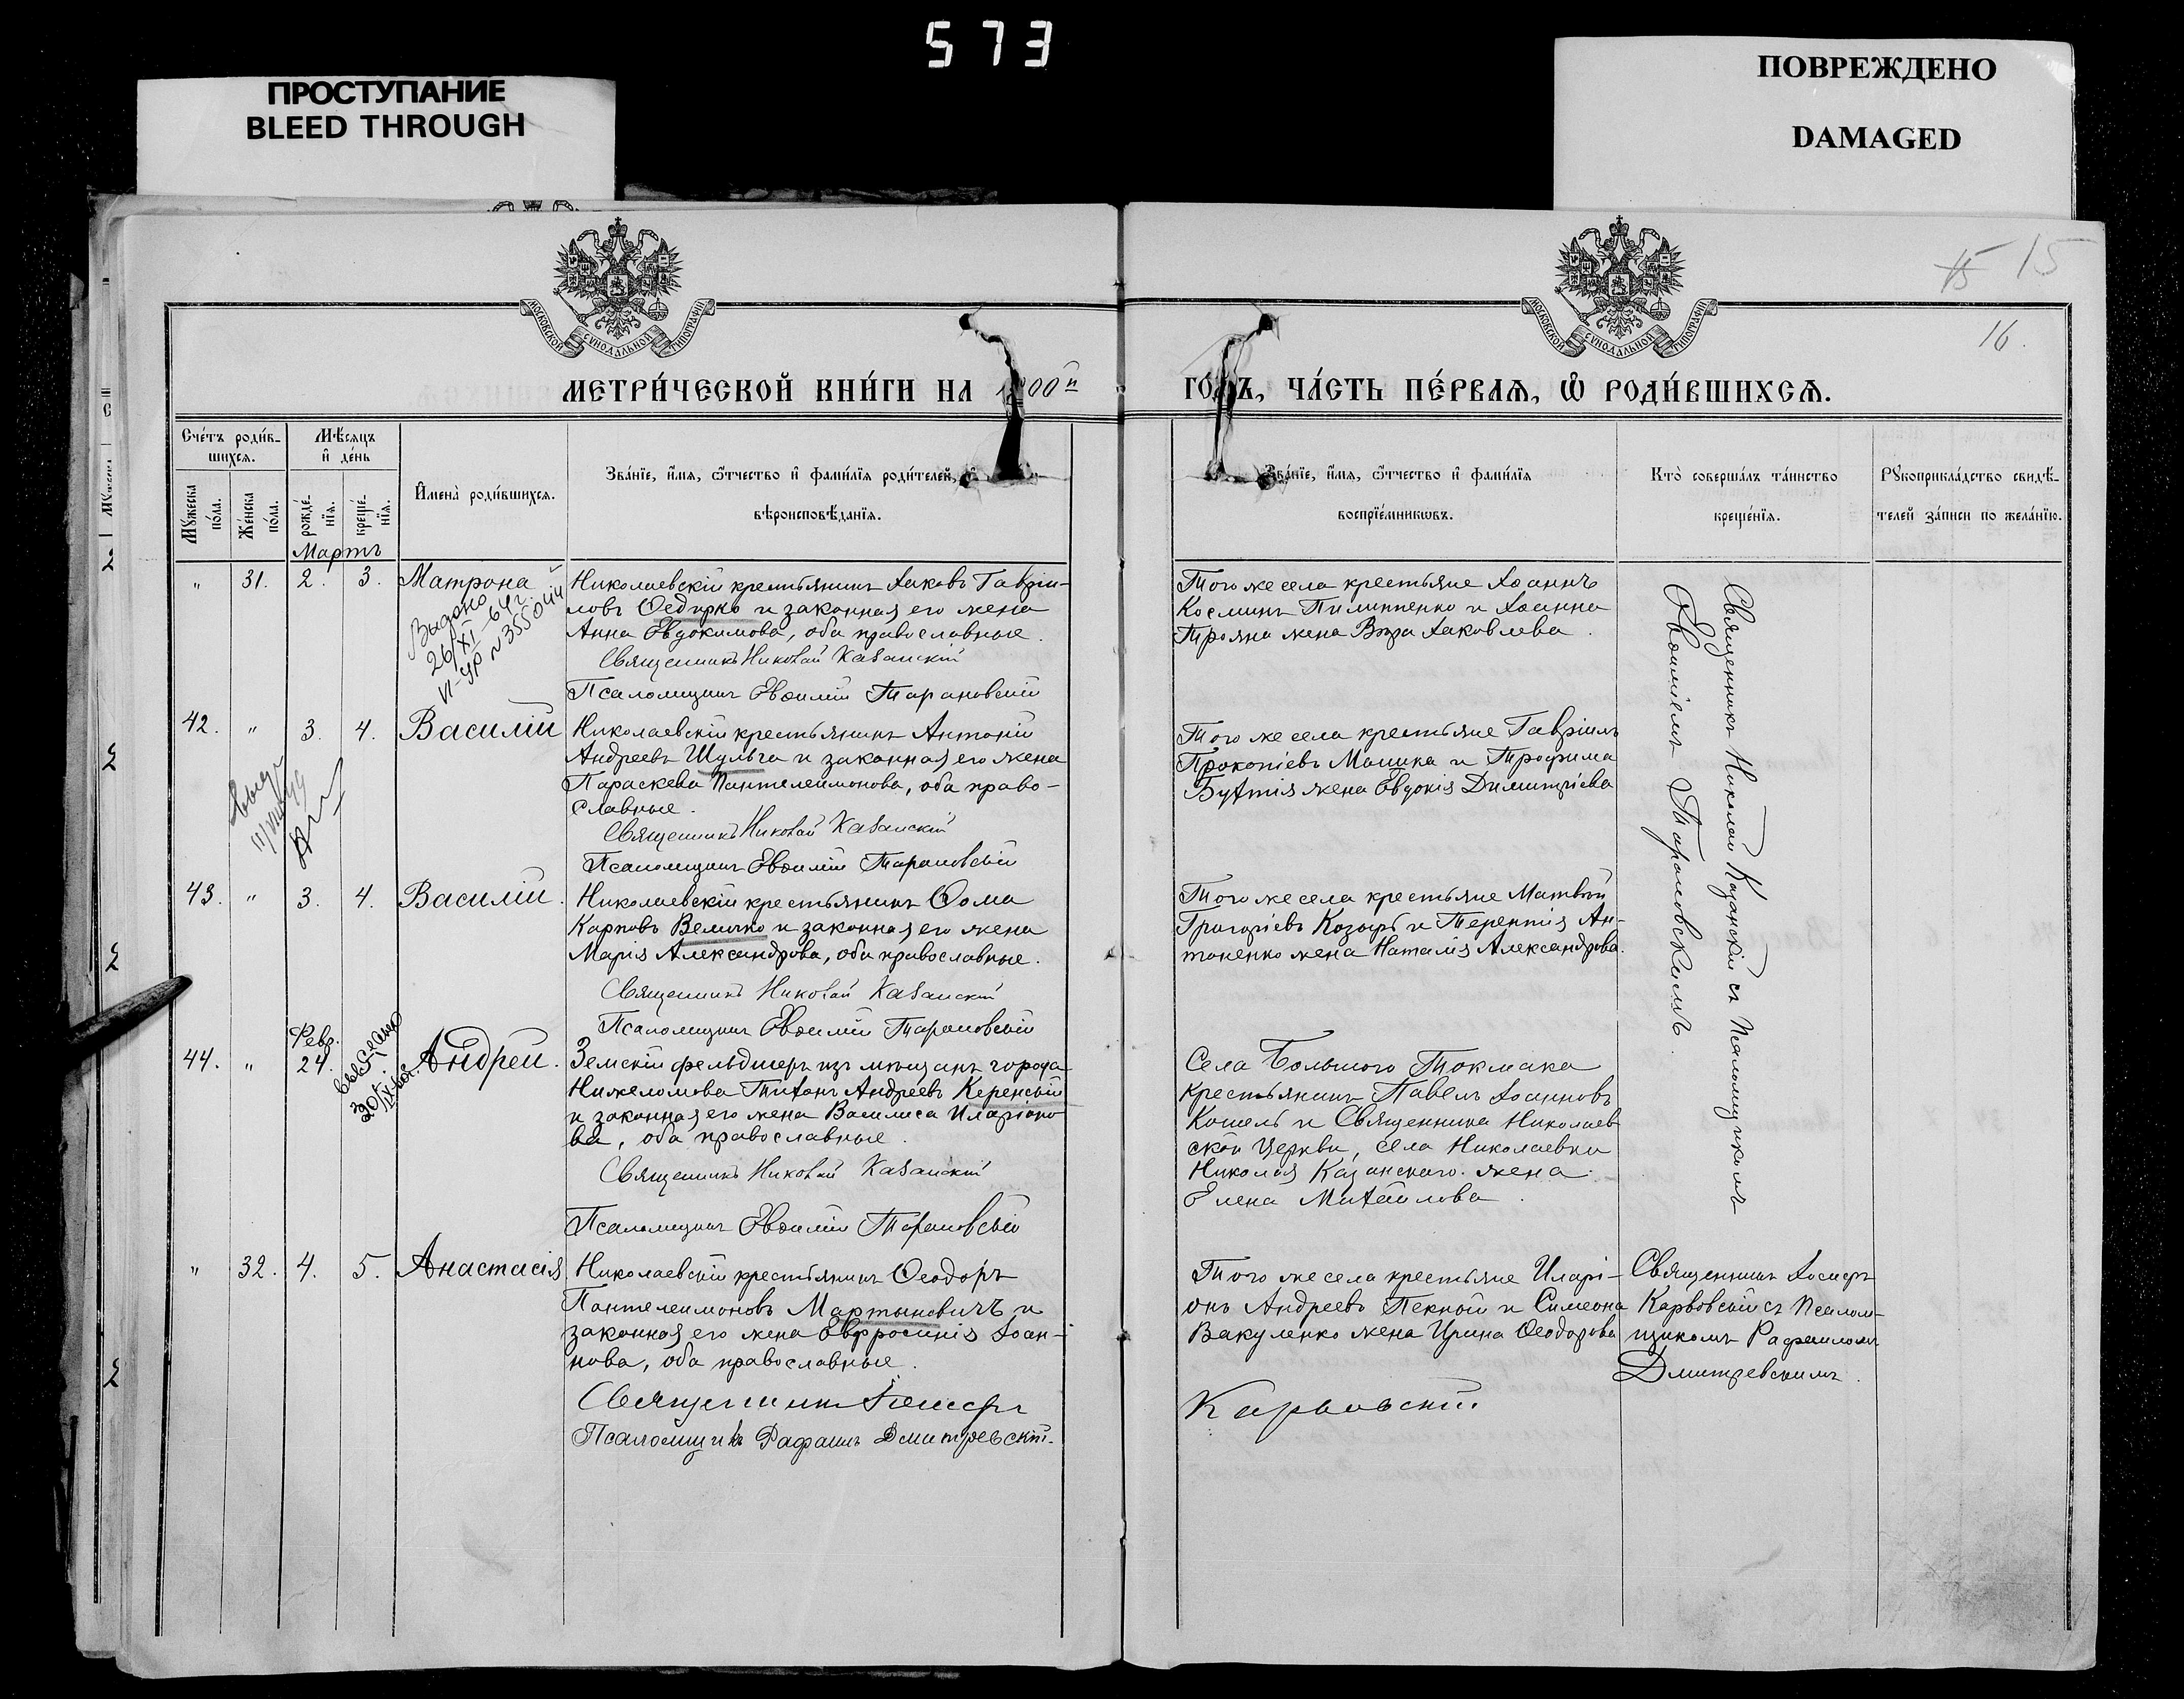 573
ПРОСТУПАНИЕ
BLEED THROUGH
ПОВРЕЖДЕНО
DAMAGED
15 15
16.
МОСКОВСКОЙ СѴНОДАЛЬНОЙ ТИПОГРАФІИ
МОСКОВСКОЙ СѴНОДАЛЬНОЙ ТИПОГРАФІИ
МЕТРИ́ЧЕСКОЙ КНИ́ГИ НА 1900й
ГО́ДЪ, ЧА́СТЬ ПЕ́РВАѦ, Ѽ РОДИ́ВШИХСѦ.
Сче́тъ роди́в-
шихсѧ.
Мꙋжеска по́ла.
Же́нска по́ла.
Мѣ́сѧцъ
и҆ де́нь
рожде́-
нїѧ.
креще́-
нїѧ.
И҆мена̀ роди́вшихсѧ.
Зва́нїе, и҆́мѧ, ѻ҆́тчество и҆ фами́лїѧ роди́телей, и҆
вѣроисповѣ́данїѧ.
Зва́нїе, и҆́мѧ, ѻ҆́тчество и҆ фами́лїѧ
воспрїе́мникѡвъ.
Кто̀ соверша́лъ та́инство
креще́нїѧ.
Рꙋкоприкла́дство свидѣ́-
телей за́писи по жела́нїю.
Мартъ
" 31. 2. 3. Матрона
Выдано
26/XI-64г.
VI-УР №355044
Николаевскій крестьянинъ Іаковъ Гавріи-
ловъ Ѳедирко и законная его жена
Анна Евдокимова, оба православные.
Священникъ Николай Казанскій
Псаломщикъ Евѳимій Тарановскій
Того же села крестьяне Іоаннъ
Косминъ Пилипенко и Іоанна
Трояна жена Вѣра Іаковлева.
Священникъ Николай Казанскій съ Псаломщикомъ
Евѳиміемъ Тарановскимъ.
42. " 3. 4. Василій
Николаевскій крестьянинъ Антоній
Андреевъ Шульга и законная его жена
Параскева Пантелеимонова, оба право-
славные.
Священникъ Николай Казанскій
Псаломщикъ Евѳимій Тарановскій
Того же села крестьяне Гавріилъ
Прокопіевъ Мошка и Трофима
Бутпія жена Евдокія Димитріева
43. " 3. 4. Василій.
Николаевскій крестьянинъ Ѳома
Карповъ Величко и законная его жена
Марія Александрова, оба православные.
Священникъ Николай Казанскій
Псаломщикъ Евѳимій Тарановскій
Того же села крестьяне Матвѣй
Григоріевъ Козарь и Терентія Ан-
тоненко жена Наталія Александрова.
Февр.
44. " 24. Андрей.
Земскій фельдшеръ изъ мѣщанъ города
Нижеломова Тихонъ Андреевъ Керенскій
и законная его жена Василиса Иларіоно
ва, оба православные.
Священникъ Николай Казанскій
Псаломщикъ Евѳимій Тарановскій
Села Большого Токмака
крестьянинъ Павелъ Іоанновъ
Кошель и Священника Николаев
ской Церкви, села Николаевки
Николая Казанскаго жена
Елена Михайлова.
" 32. 4. 5. Анастасія
Николаевскій крестьянинъ Ѳеодоръ
Пантелеимоновъ Мартыновичъ и
законная его жена Евфросинія Іоан-
нова, оба православные.
Священникъ Іосифъ
Псаломщикъ Рафаилъ Дмитревскій.
Того же села крестьяне Иларі-
онъ Андреевъ Пекной и Симеона
Вакуленко жена Ирина Ѳеодорова
Карвовскій.
Священникъ Іосифъ
Карвовскій съ Псалом-
щикомъ Рафаиломъ
Дмитревскимъ.